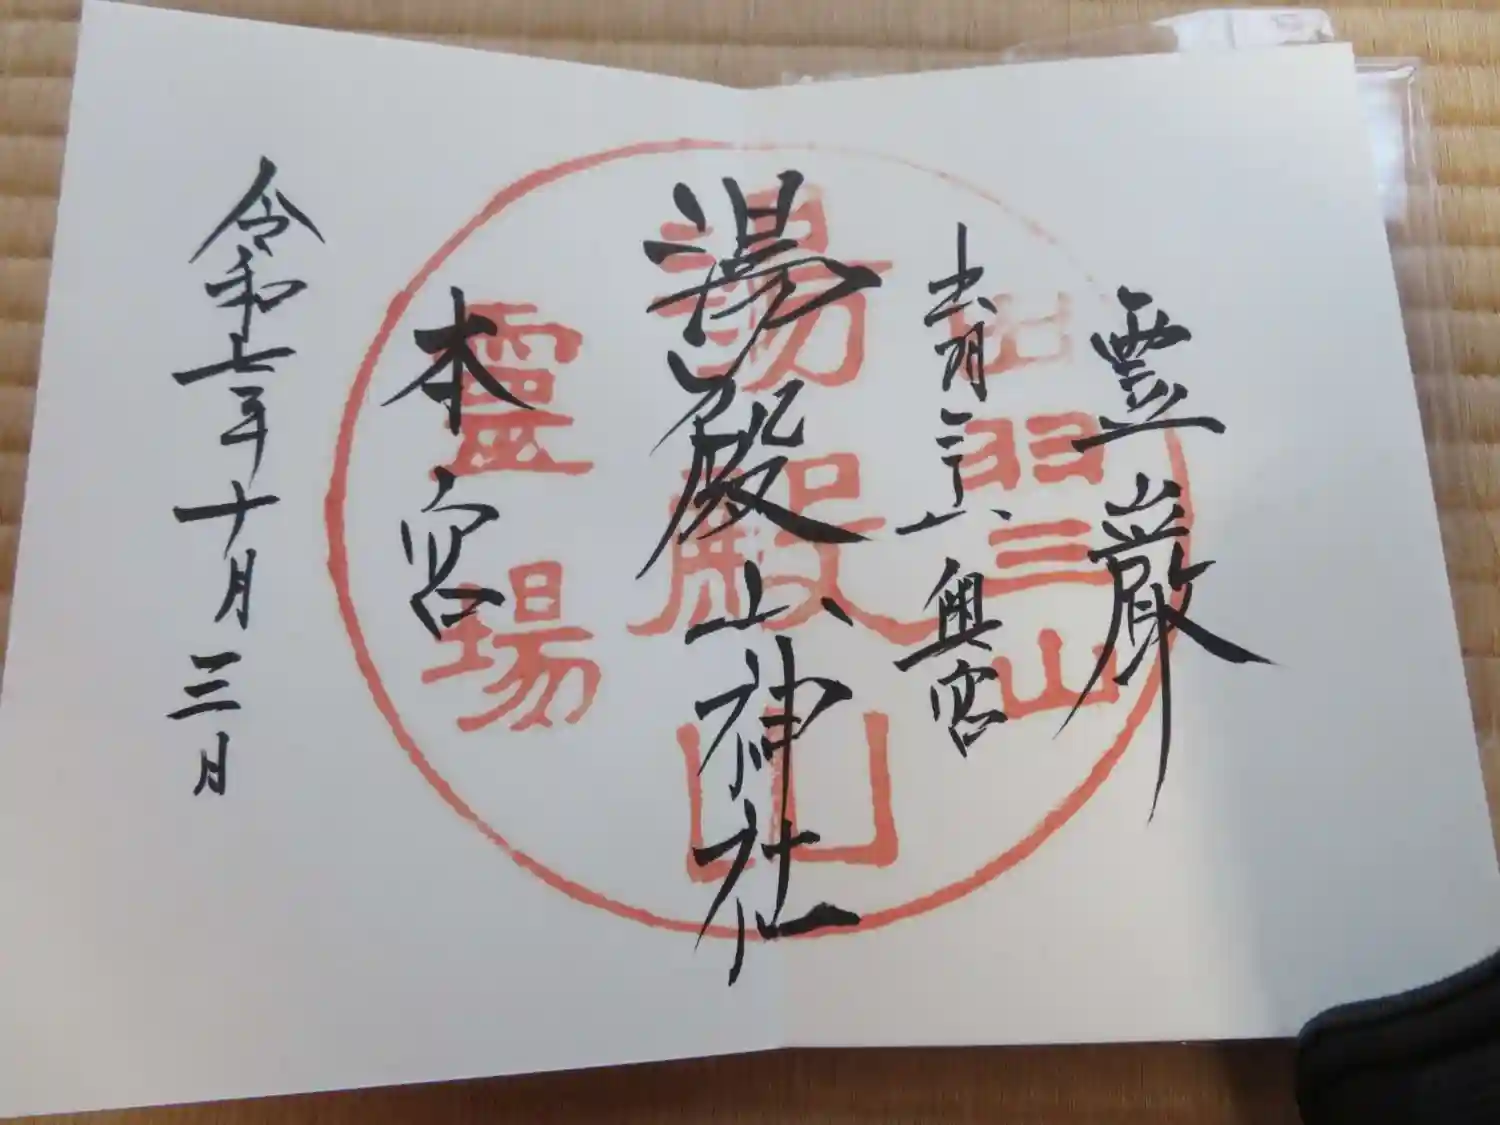 霊巌
出羽三山奥宮
湯殿山神社
本宮
令和七年十月三日
出羽三山
湯殿山
靈場